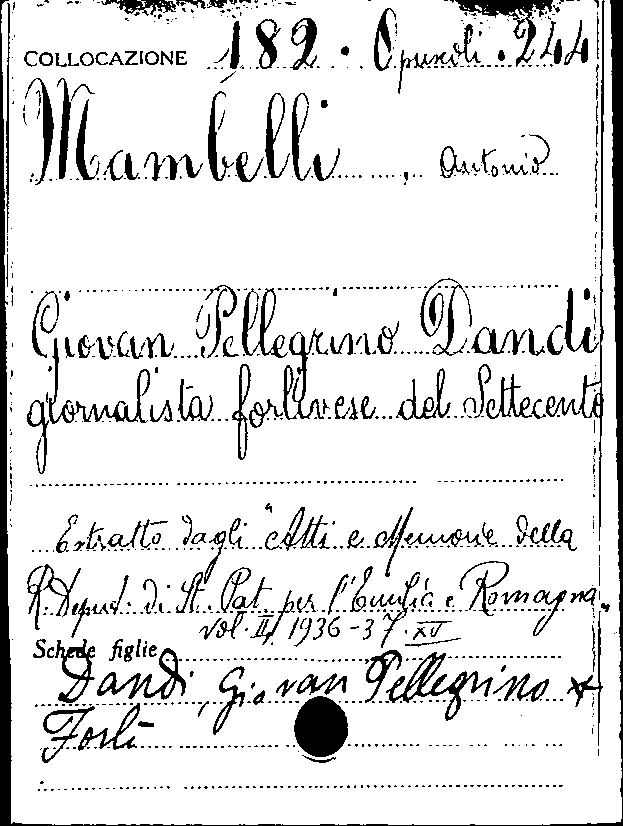 COLLOCAZIONE 182 · Opuscoli · 244
Mambelli, Antonio
Giovan Pellegrino Dandi
giornalista forlivese del Settecento
Estratto dagli "Atti e Memorie della
R. Deput. di St. Pat. per l'Emilia e Romagna"
vol. II, 1936-37. XV
Schede figlie
Dandi, Giovan Pellegrino
Forlì